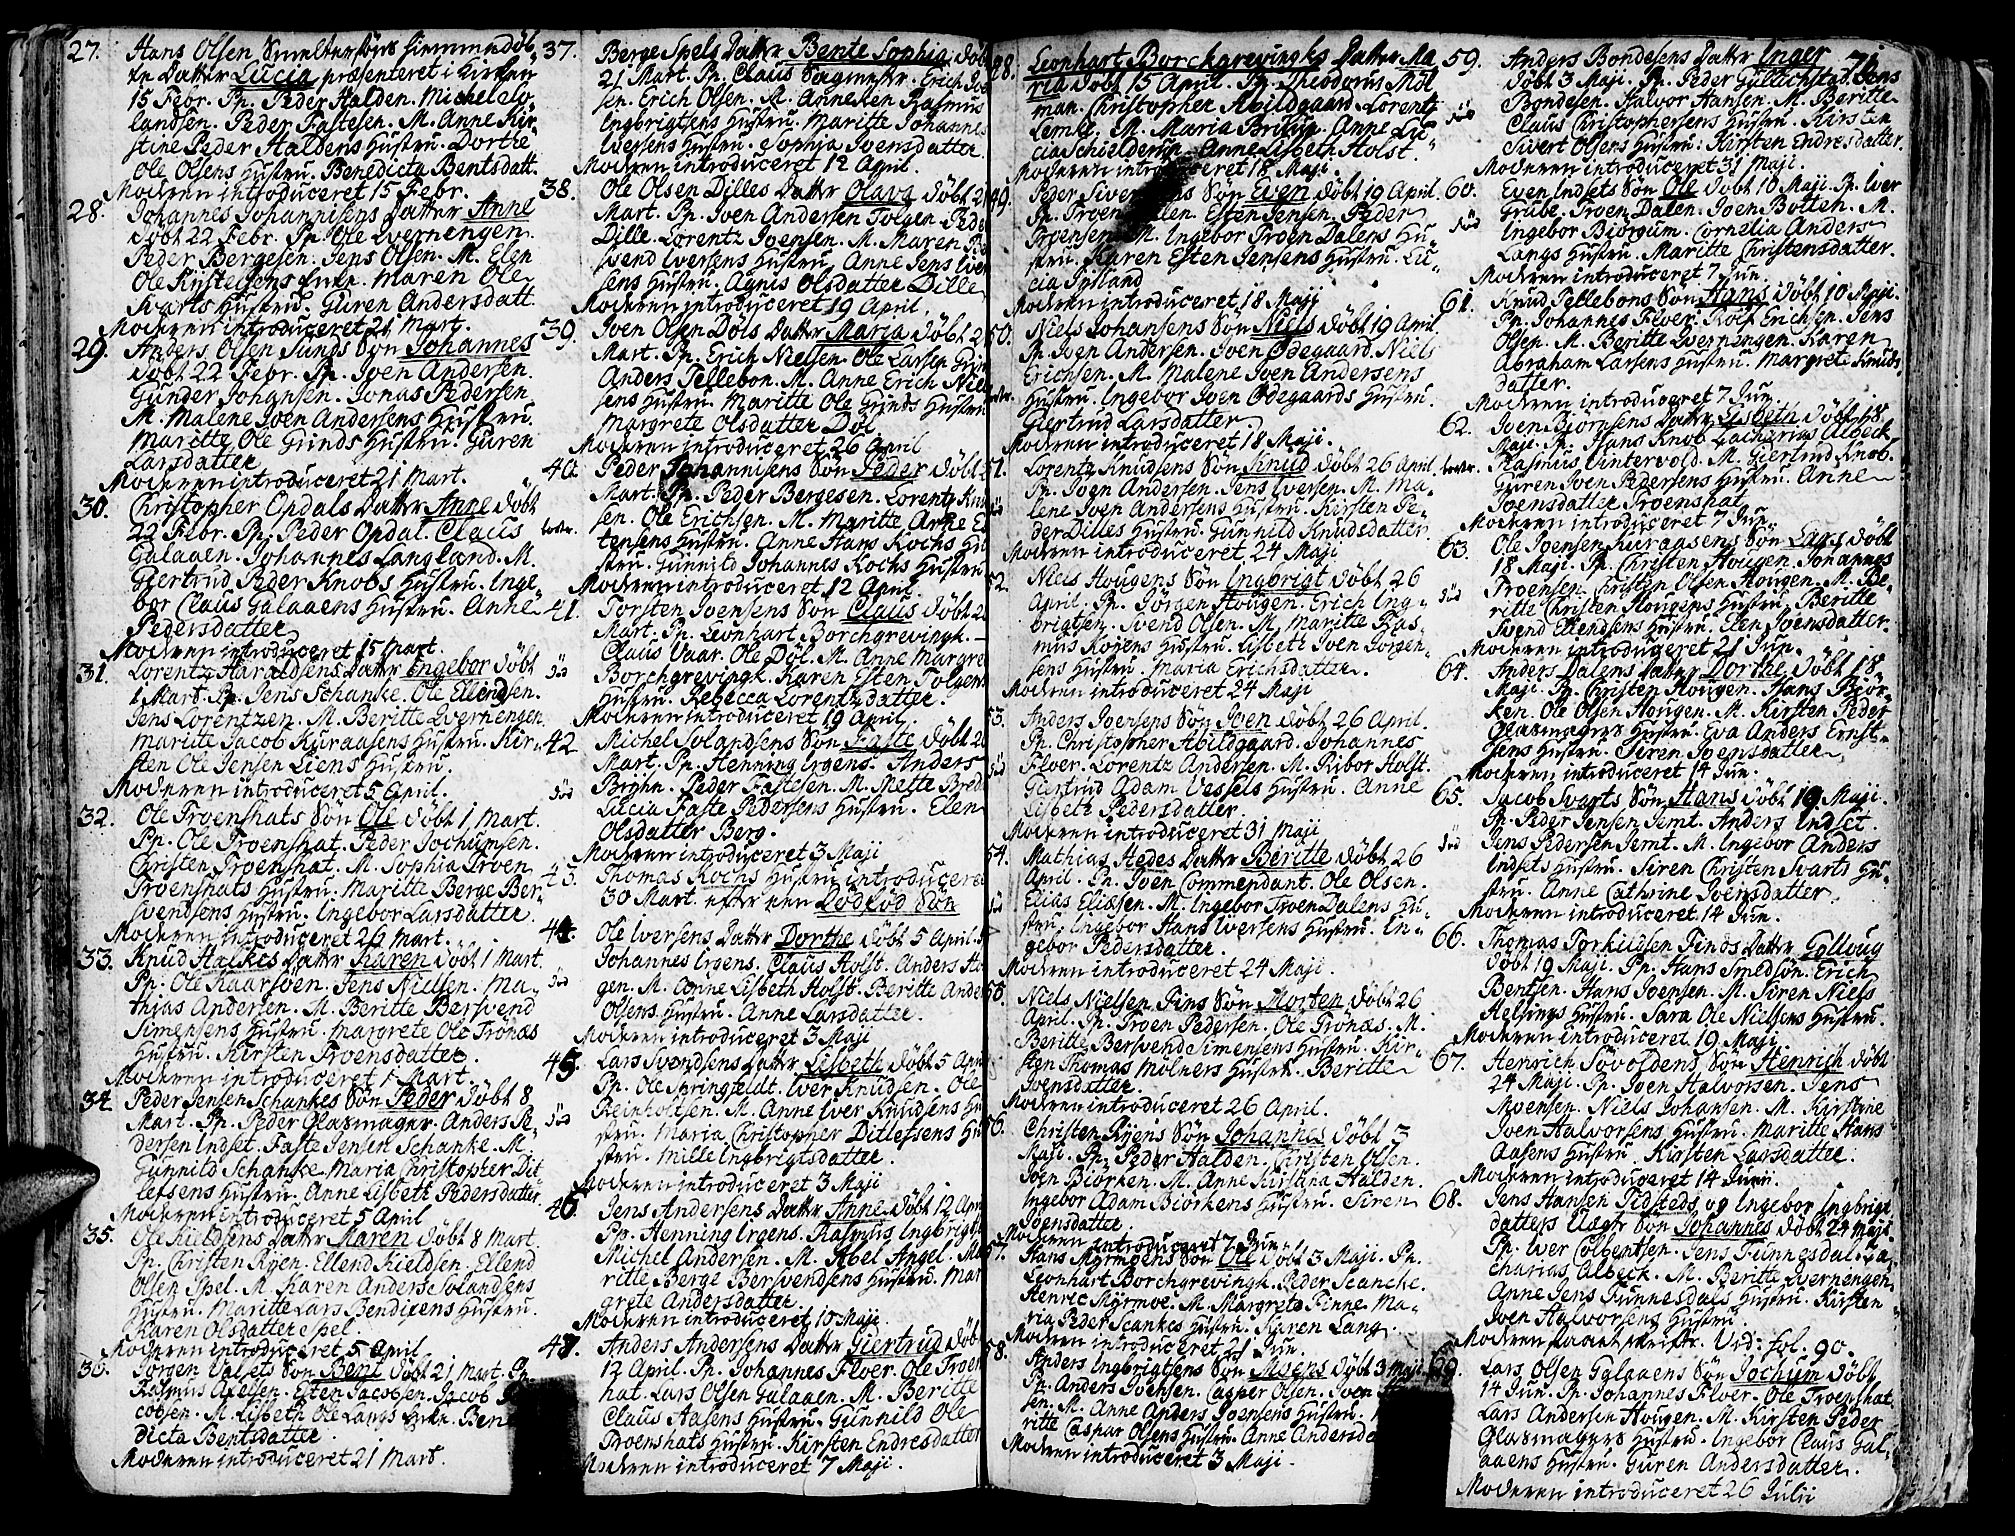 27. Hans Olsen Smeltersøns hiemmedöb-
te Datter Lucia præsenteret i Kirken
15 Febr. Pp. Peder Halden. Michel So-
landsen. Peder Fastesen. M. Anne Kir-
stine Peder Haldens Hustru. Dorthe
Ole Olsens Hustru. Benedicta Bentsdatt.
Moderen introduceret 15 Febr.
28. Johannes Johannisens Datter Anne
döbt 22 Febr. Pp. Ole Qvernengen.
Peder Bergesen. Jens Olsen. M. Elen
Ole Kirstelsens Enke. Maren Ole
Svarts Hustru. Guren Andersdatt.
Moderen introduceret 21 Mart.
29. Anders Olsen Sunds Søn Johannes
döbt 22 Febr. Pp. Joen Andersen.
Gunder Johansen. Jonas Pedersen
M. Malene Joen Andersens Hustru.
Maritte Ole Grinds Hustru. Guren
Larsdatter
Moderen introduceret 21 Mart.
30. Christopher Opdals Datter Anne döbt
22 Febr. Pp. Peder Opdal. Claus
Galaaen. Johannes Langland. M.
Giertrud Peder Knobs Hustru. Inge-
bor Claus Galaaens Hustru. Anne
Pedersdatter
Moderen introduceret 15 Mart.
31. Lorentz Haraldsens Datter Ingebor döbt
1 Mart. Pp. Jens Schanke. Ole Ellendsen.
Jens Lorentzen. M. Beritte Qvernengen.
Maritte Jacob Kuraasens Hustru. Kir-
sten Ole Jensen Liens Hustru.
Moderen introduceret 5 April.
32. Ole Troenshats Søn Ole döbt 1 Mart.
Pp. Ole Troenshat. Peder Jochumsen.
Christen Troenshat. M. Sophia Troen
Troenshats Hustru. Maritte Berge Ber-
svendsens Hustru. Ingebor Larsdatter.
Moderen introduceret 26 Mart.
33. Knud Halkes Datter Karen döbt 1 Mart.
Pp. Ole Kaarsven. Jens Nielsen. Ma-
thias Andersen. M. Beritte Bersvend
Simensens Hustru. Margrete Ole Trönæs
Hustru. Kirsten Troensdatter.
Moderen introduceret 1 Mart.
34. Peder Jensen Schankes Søn Peder döbt 8
Mart. Pp. Peder Glasmager. Anders Pe-
dersen Indset. Faste Jensen Schanke. M.
Gunnild Schanke. Maria Christopher Dit-
lefsens Hustru. Anne Lisbeth Pedersdatter.
Moderen introduceret 5 April
35. Ole Kieldsens Datter Maren döbt 8 Mart.
Pp. Christen Ryen. Ellend Kieldsen. Ellend
Olsen Spel. M. Karen Anders Solandsens
Hustru. Maritte Lars Bendixens Hustru.
Karen Olsdatter Spel.
Moderen introduceret 5 April
36. Jørgen Valsets Søn Bent döbt 21 Mart. Pp.
Rasmus Axelsen. Esten Jacobsen. Jacob
cobsen. M. Lisbeth Ole Langs Enke. Bene
dicta Bentsdatter.
Moderen introduceret 21 Mart.
37. Berge Spels Datter Bente Sophia döbt
21 Mart. Pp. Claus Sagmester. Erich
sen. Erich Olsen. M. Anneken Rasmus
Ingbrigtsens Hustru. Maritte Johannes
Iversens Hustru. Sophia Joensdatter.
Moderen introduceret 12 April.
38. Ole Olsen Dilles Datter Olava döbt
Mart. Pp. Joen Andersen Tolgen. Peder
Dille. Lorentz Joensen. M. Maren
svend Iversens Hustru. Anne Jens Iver
sens Hustru. Agnis Olsdatter Dille
Moderen introduceret 19 April.
39. Joen Olsen Döls Datter Maria döbt
Mart. Pp. Erich Nielsen. Ole Larsen
Anders Tellebon. M. Anne Erich Niel
sens Hustru. Maritte Ole Grinds Hustru
Margrete Olsdatter Döl
Moderen introduceret 26 April
40. Peder Johannisens Søn Peder döbt
Mart. Pp. Peder Bergesen. Lorentz Knud
sen. Ole Erichsen. M. Maritte Arne
tensens Hustru. Anne Hans Kochs
stru. Gunnild Johannes Kochs Hustru
Moderen introduceret 12 April.
41. Torsten Joensens Søn Claus döbt
Mart. Pp. Leonhart Borchgrevingk.
Claus Vaar. Ole Döl. M. Anne Margre
död Borchgrevingk. Karen Esten Tolgens
Hustru. Rebecca Lorentzdatter.
Moderen introduceret 19 April.
42 Michel Solandsens Søn Faste döbt
Mart. Pp. Henning Irgens. Anders
död Bryhn. Peder Fastesen. M. Mette Bredal
Lucia Faste Pedersens Hustru. Elen
Olsdatter Berg.
Moderen introduceret 3 Maji
43. Thomas Kochs Hustru introduceret
30 Mart. efter een Dødfød Søn
44. Ole Iversens Datter Dorthe döbt 5 April.
Johannes Irgens. Claus Holst. Anders
död gen. M. Anne Lisbeth Holst. Beritte Anders
Olsens Hustru. Anne Larsdatter.
Moderen introduceret 3 Maji
45. Lars Svendsens Datter Lisbeth döbt 5 April
Pp. Ole Springfeldt. Iver Knudsen. Ole
död Reinholtsen. M. Anne Iver Knudsens
stru. Maria Christopher Ditlefsens
stru. Mille Ingbrigtsdatter.
Moderen introduceret 3 Maji
46. Jens Andersens Datter Anne döbt 12 April
Pp. Henning Irgens. Rasmus Ingbrigtsen
Michel Andersen. M. Abel Angel. Ma
ritte Berge Bersvendsens Hustru. Mar
grete Andersdatter.
Moderen introduceret 10 Maji.
47. Anders Andersens Datter Giertrud döbt
12 April. Pp. Johannes Flver. Ole Troens
hat. Lars Olsen Galaaen. M. Beritte
Claus Aasens Hustru. Gunnild Ole
Troenshats Hustru. Kirsten Endresdatter
Moderen introduceret 7 Maji.
48. Leonhart Borchgrevingks Datter Ma
ria döbt 15 April. Pp. Theodorus Möl
man. Christopher Abildgaard. Lorentz
Lemke. M. Maria Bruun. Anne Lu-
cia Schielderup. Anne Lisbeth Holst.
Moderen introduceret 18 Maji.
49. Peder Siver Søn Even döbt 19 April.
Pp. Troen Dalen. Esten Jensen. Peder
Troensen. M. Ingebor Troen Dalens Hu-
stru. Karen Esten Jensens Hustru. Lu-
cia
Moderen introduceret 18 Maji
50. Niels Johansens Søn Niels döbt 19 April.
Pp. Joen Andersen. Joen Ødegaard. Niels
Erichsen. M. Malene Joen Andersens
Hustru. Ingebor Joen Ødegaards Hustru.
Giertrud Larsdatter.
Moderen introduceret 18 Maji.
51. Lorentz Knudsens Søn Knud döbt 26 April
Pp. Joen Andersen. Jens Iversen. M. Ma-
lene Joen Andersens Hustru. Kirsten Pe-
der Dilles Hustru. Gunnild Knudsdatter.
Moderen introduceret 24 Maji
52. Niels Hougens Søn Ingbrigt döbt 26
April. Pp. Jörgen Hougen. Erich Ing-
brigtsen. Svend Olsen. M. Maritte Ras-
mus Korens Hustru. Lisbeth Joen Joen-
sens Hustru. Maria Erichsdatter.
Moderen introduceret 24 Maji
53. Anders Joensens Søn Joen döbt 26 April.
Pp. Christopher Abildgaard. Johannes
död Flver. Lorentz Andersen. M. Ribor Holst.
Giertrud Adam Vessels Hustru. Anne
Lisbeth Pedersdatter
Moderen introduceret 31 Maji
54. Mathias Hedes Datter Beritte döbt 26
April. Pp. Joen Commendant. Ole Olsen.
död Elias Eliæsen. M. Ingebor Troen Dalens Hu-
stru. Ingebor Hans Iversens Hustru. In-
gebor Pedersdatter.
Moderen introduceret 24 Maji.
55. Niels Nielsen Fins Søn Morten döbt 26
April. Pp. Troen Pedersen. Ole Trönæs. M.
Beritte Bersvend Simensens Hustru. Kir-
sten Thomas Molners Hustru. Beritte
Joensdatter.
Moderen introduceret 26 April.
56. Christen Ryens Søn Johannes döbt 3
Maji. Pp. Peder Halden. Christen Olsen.
Joen Biörken. M. Anne Kirstina Halden.
Ingebor Adam Biörkens Hustru. Siren
Joensdatter.
Moderen introduceret 7 Jun.
57. Hans Myrmoens Søn Ole döbt 3 Maji. Pp.
Leonhart Borchgrevingk. Peder Scancke.
Henric Myrmoe. M. Margrete Finne. Ma-
ria Peder Scankes Hustru. Karen Lang.
Moderen introduceret 21 Jun.
58. Anders Ingbrigtsens Søn Moens döbt 3 Maji.
Pp. Anders Joensen. Casper Olsen. Joen
sen. M. Anne Anders Joensens Hustru.
ritte Caspar Olsens Hustru. Anne Andersda
Moderen introduceret 3 Maji.
59. Anders Bondesens Datter Inger 71.
döbt 3 Maji. Pp. Peder Gullichstad. Jens
död Bondesen. Halvor Hansen. M. Beritte
Claus Christophersens Hustru. Kirsten
Sivert Olsens Hustru. Kirsten Endresdatter.
Moderen introduceret 31 Maji.
60. Even Indsets Søn Ole döbt 10 Maji. Pp. Iver
Grube. Troen Dalen. Joen Botten. M.
död Ingebor Biörgum. Cornelia Anders
Langs Hustru. Maritte Christensdatter.
Moderen introduceret 7 Jun.
61. Knud Tellebons Søn Hans döbt 10 Maji.
Pp. Johannes Flver. Rolf Erichsen. Jens
Olsen. M. Beritte Qvernengen. Karen
Abraham Larsens Hustru. Margrete Knuds-
datter.
Moderen introduceret 7 Jun.
62. Joen Biörnsens Datter Lisbeth döbt 18
Maji. Pp. Hans Knob. Zacharias Albeck.
Rasmus Vintervold. M. Giertrud Knob.
Guren Joen Pedersens Hustru. Anne
Joensdatter Troenshat
Moderen introduceret 7 Jun.
63. Ole Joensen Kuraasens Søn Lars döbt
18 Maji. Pp. Christen Hougen. Johannes
död Troensen. Christen Olsen Hougen. M. Be-
ritte Christen Hougens Hustru. Beritte
Svend Ellendsens Hustru. Elen Joensdatter.
Moderen introduceret 21 Jun.
64. Anders Dalens Datter Dorthe döbt 18
Maji. Pp. Christen Hougen. Hans Biör-
ken. Ole Olsen Hougen. M. Kirsten Peder
Glasmagers Hustru. Eva Anders Ernst-
sens Hustru. Siren Joensdatter
Moderen introduceret 14 Jun.
65. Jacob Svarts Søn Hans döbt 19 Maji.
Pp. Peder Jensen Jemt. Anders Indset.
död Jens Pedersen Jemt. M. Ingebor Anders
Indsets Hustru. Siren Christen Svarts Hu-
stru. Anne Cathrine Iversdatter.
Moderen introduceret 14 Jun.
66. Thomas Torkildsen Finds Datter Gollvug
döbt 19 Maji. Pp. Hans Smedsøn. Erich
Bentsen. Hans Joensen. M. Siren Niels
Helsings Hustru. Sara Ole Nielsens Hustru.
Moderen introduceret 19 Maji
67. Henrich Sövoldens Søn Henrich döbt
24 Maji. Pp. Joen Halvorsen. Jens
Moensen. Niels Johansen. M. Kirstine
Joen Halvorsens Hustru. Maritte Hans
Aasens Hustru. Kirsten Larsdatter.
Moderen introduceret 14 Junii.
68. Jens Hansen Tidsteds og Ingebor Ingbrigt
datters Uægte Søn Johannes döbt 24 Maji
Pp. Iver Colbentsen. Jens Funnesdal. Za-
charias Albeck. M. Beritte Qvernengen
Anne Jens Funnesdals Hustru. Kirsten
Joen Halvorsens Hustru
Moderen staaet skrifte. Vid: fol. 90.
69. Lars Olsen Galaaens Søn Jochum döbt
14 Jun. Pp. Johannes Flver. Ole Troenshat.
Lars Andersen Hougen. M. Kirsten Peder
Glasmagers Hustru. Ingebor Claus Gal-
aaens Hustru. Guren Andersdatter.
Moderen introduceret 26 Julii